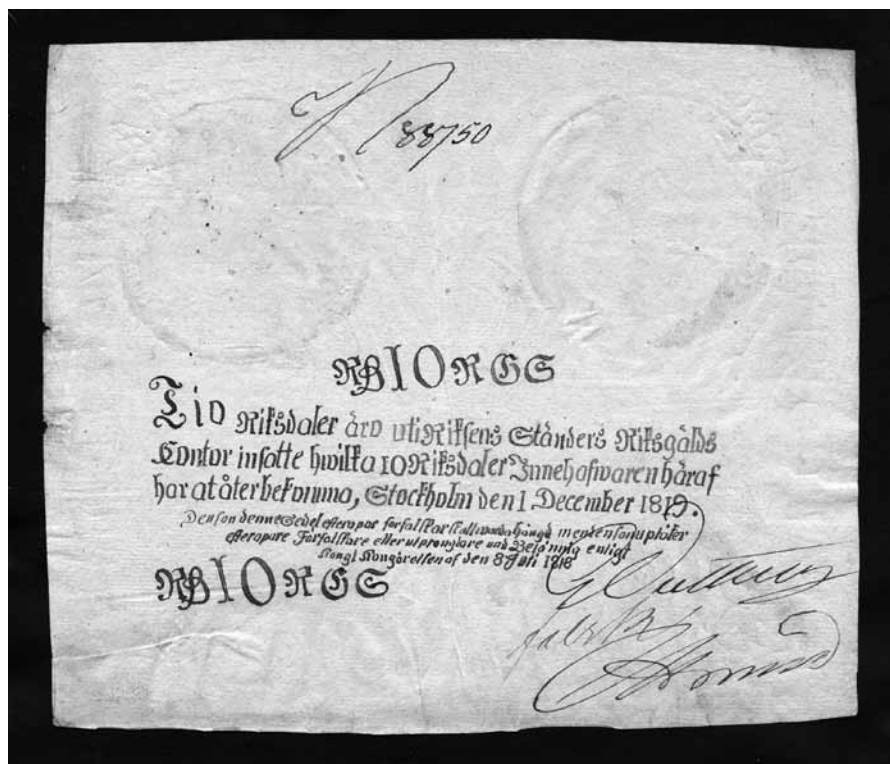 N 88750
RD 10 RGS
Tio Riksdaler äro uti Riksens Ständers Riksgälds
Contor insatte hwilka 10 Riksdaler Innehafwaren häraf
har at återbekomma, Stockholm den 1 December 1819.
Den son denne Sedel efterapar förfalskar skall warda hängd men den som uptäker
efterapare Förfalskare eller utpronglare und Belöning enligt
Kongl Kongörelsen af den 8 Juli 1818
RD 10 RGS